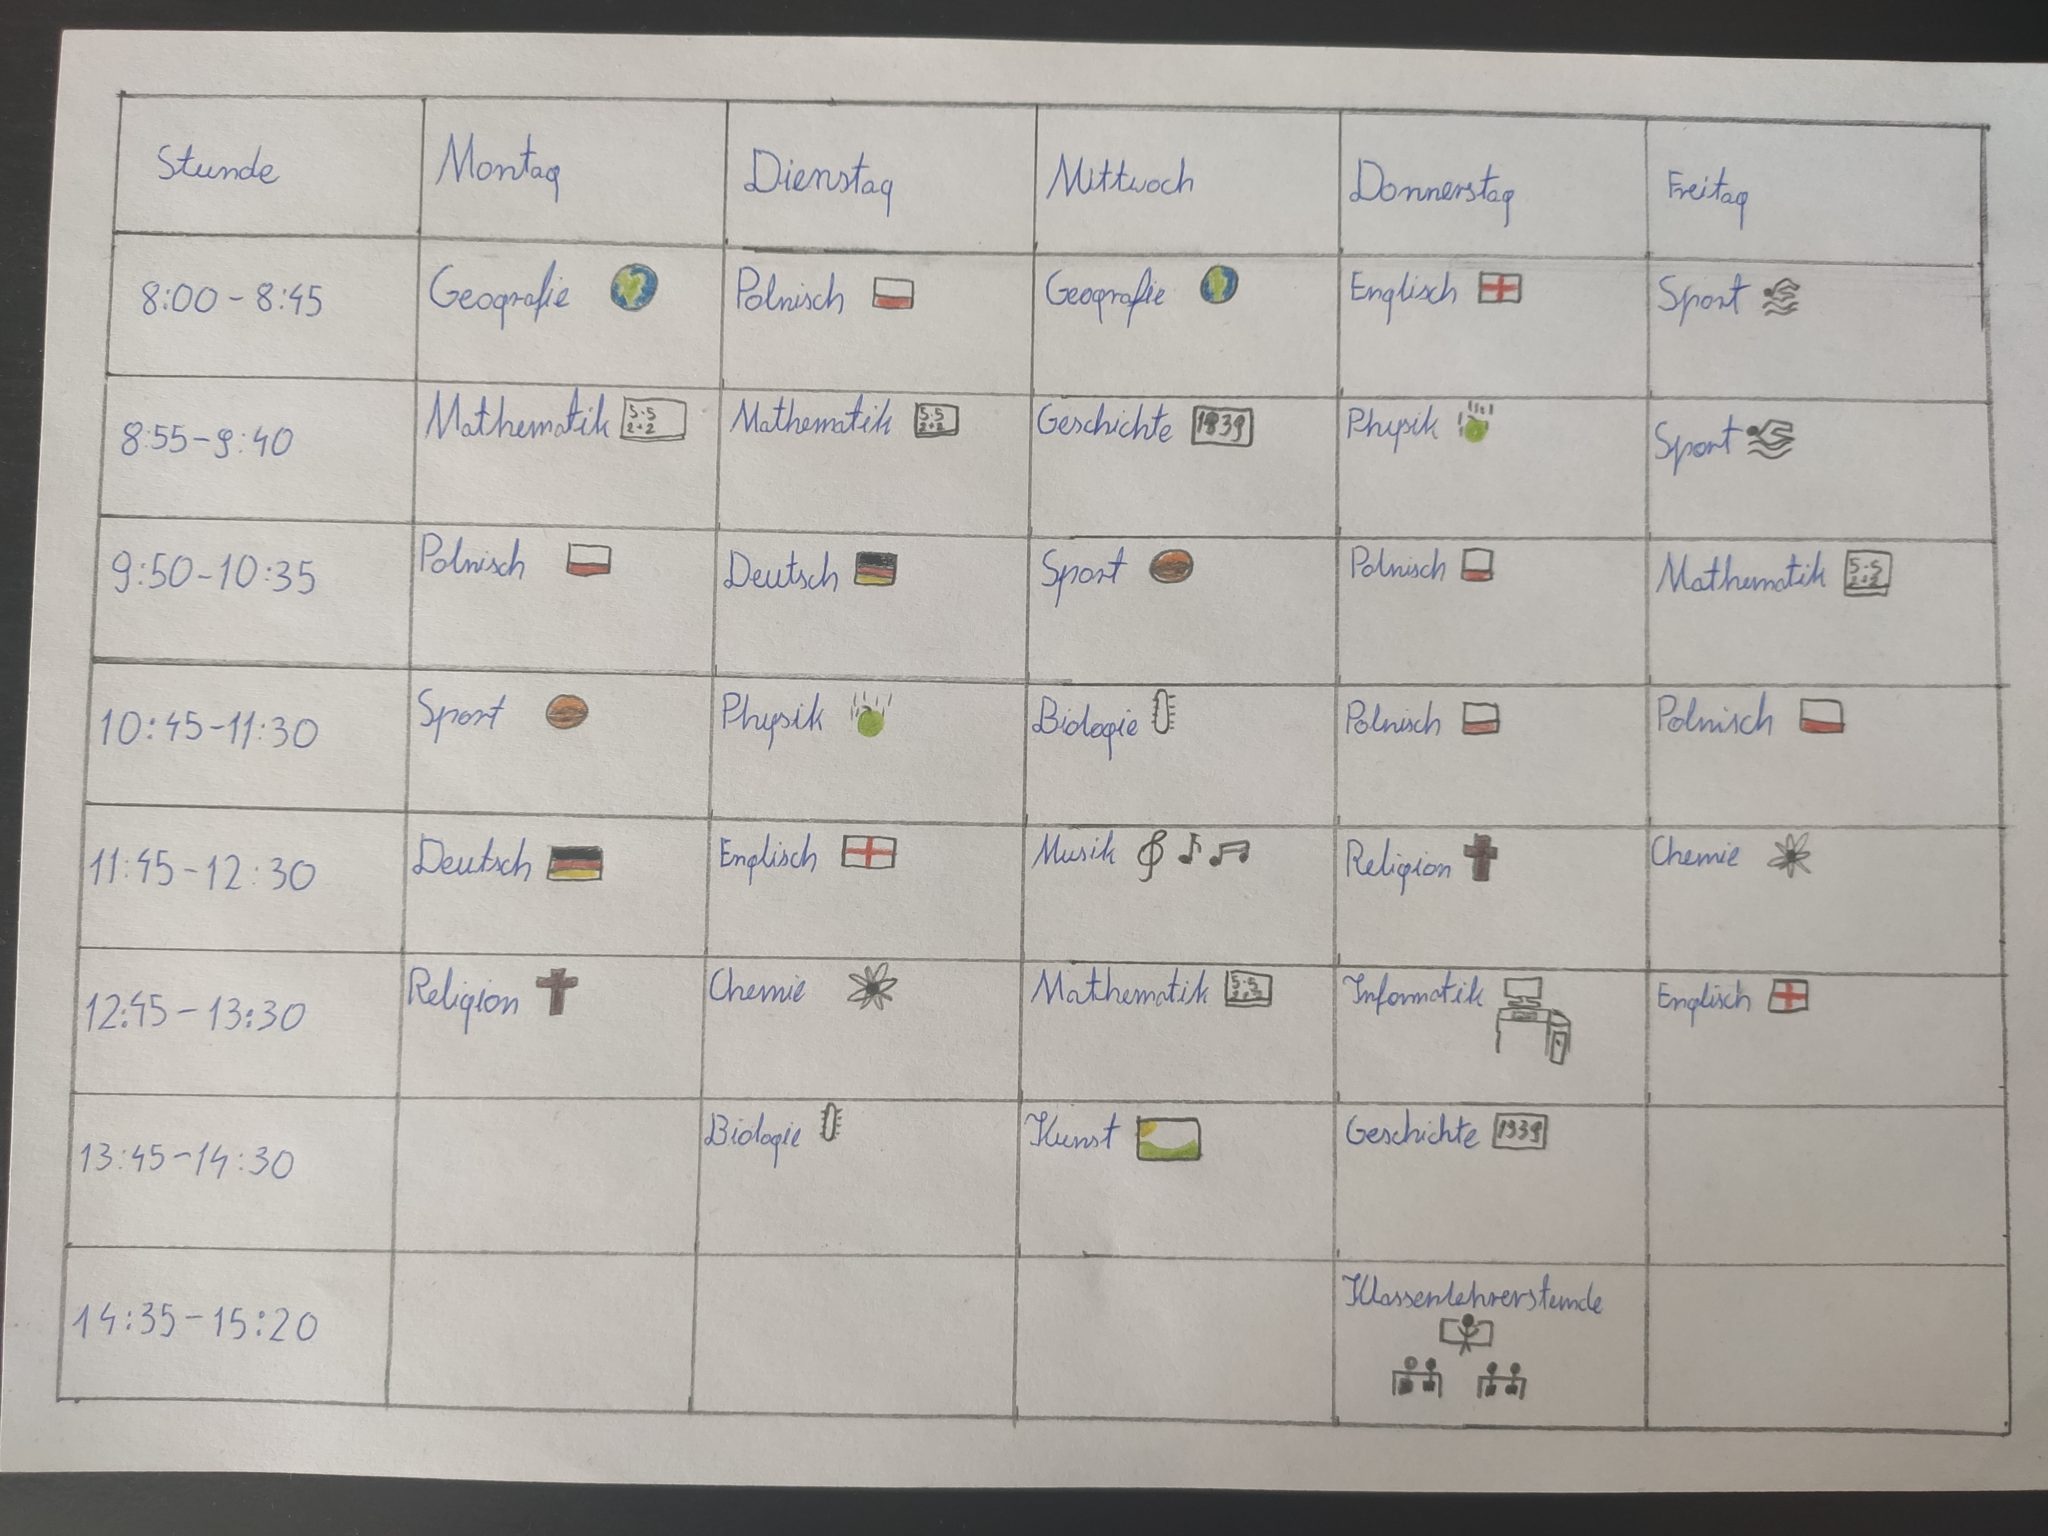 Stunde Montag Dienstag Mittwoch Donnerstag Freitag
8:00-8:45 Geografie Polnisch Geografie Englisch Sport
8:55-9:40 Mathematik 5·5 2+2 Mathematik 5·5 2+2 Geschichte 1939 Physik Sport
9:50-10:35 Polnisch Deutsch Sport Polnisch Mathematik 5·5 2+2
10:45-11:30 Sport Physik Biologie Polnisch Polnisch
11:45-12:30 Deutsch Englisch Musik Religion Chemie
12:45-13:30 Religion Chemie Mathematik 5·5 2+2 Informatik Englisch
13:45-14:30 Biologie Kunst Geschichte 1939
14:35-15:20 Klassenlehrerstunde